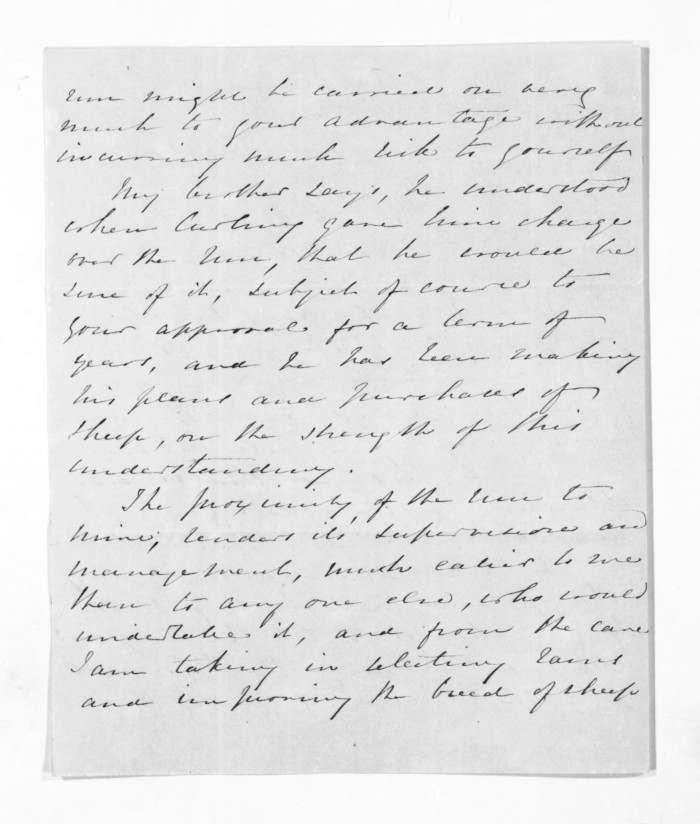 run might be carried on very
much to your advantage without
incurring much risk to yourself
My brother says, he understood
when Curling gave him charge
over the run, that he would be
sure of it, subject of course to
your approval for a term of
years, and he has been making
his plans and purchases of
sheep, on the strength of this
understanding.
The proximity of the run to
mine, renders its supervision and
management, much easier to me
than to any one else, who would
undertake it, and from the care
I am taking in selecting rams
and improving the breed of sheep